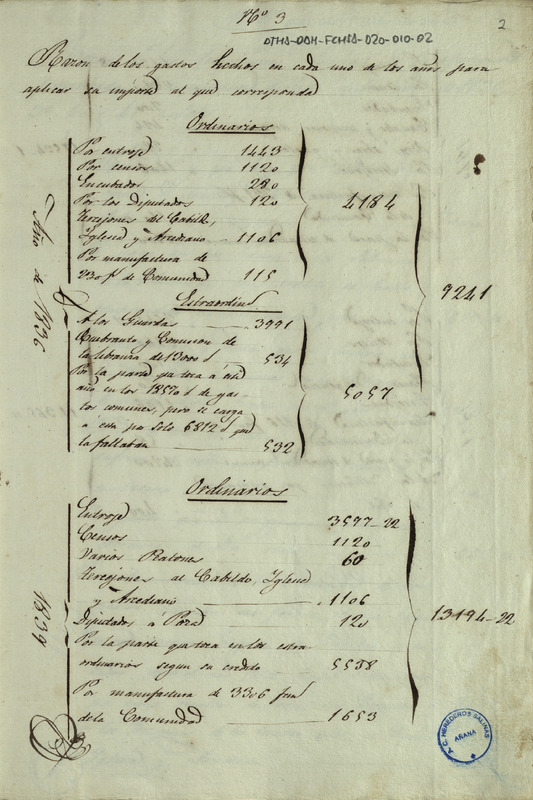 Nº 3
2
DTHA-DAH-FCHSA-020-010-02
Razon de los gastos hechos en cada uno de los años para
aplicar su importe al que corresponda
Ordinarios
Por entroje 1443
Por censos 1120
Encubador 280
Por los Diputados 120
Tercejones del Cabildo,
Yglesia y Arcediano 1106
Por manufactura de
230 f.s de Comunidad 115
4184
Año de 1836
Estraordin.s
A los Guardas 3991
Quebranto y Comision de
la libranza de 13000 534
Por la parte que toca a este
año en los 18570 de gas-
tos comunes, pero se carga
a este por solo 6812 que
la faltaban 532
5057
9241
Ordinarios
Entroje 3577-22
Censos 1120
Varios Ratones 60
Tercejones al Cabildo, Yglesia
y Arcediano 1106
Diputados a Poza 120
Por la parte que toca en los estra-
ordinarios segun su credito 5558
Por manufactura de 3306 fan.s
de la Comunidad 1653
13194-22
1837
A.C. HEREDEROS SALINAS
AÑANA